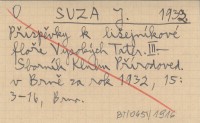 SUZA J. 1933
Příspěvky k lišejníkové
floře Vysokých Tater. III.
Sborník Klubu Přírodověd.
v Brně za rok 1932, 15:
3-16, Brno.